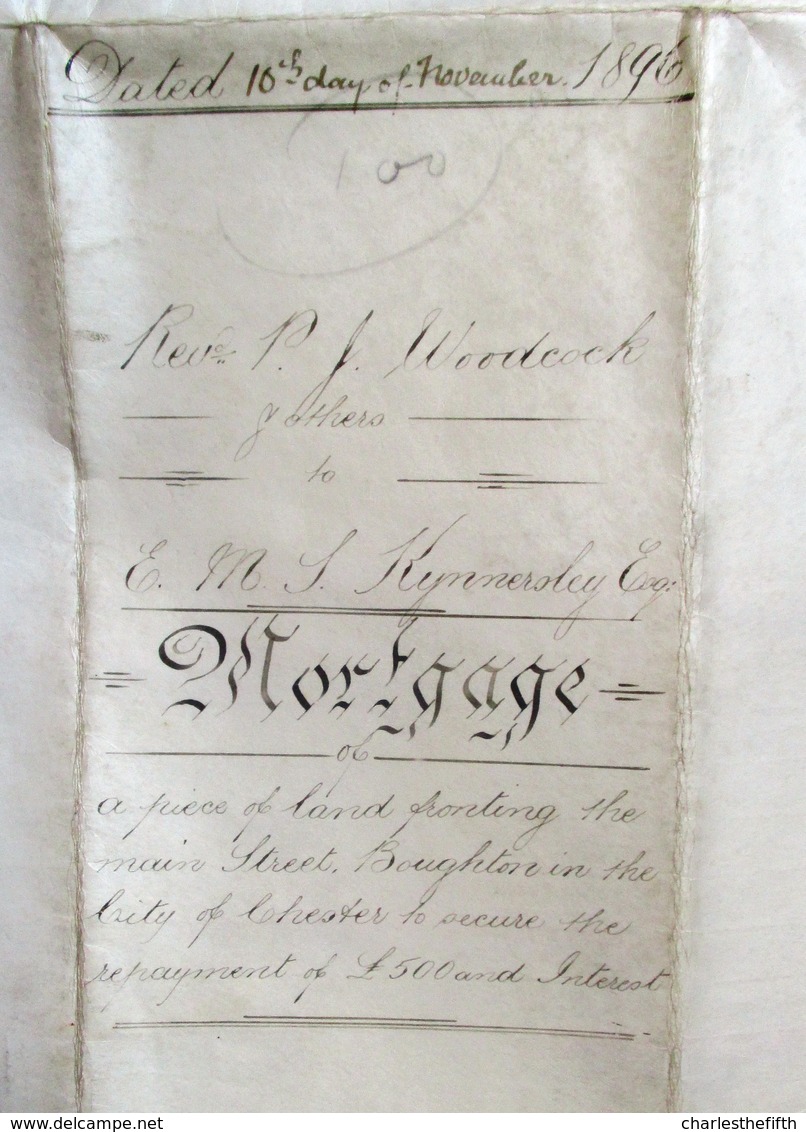 Dated 10th day of November. 1896
100
Revd. P. J. Woodcock
& others
to
E. M. S. Kynnersley Esq:
Mortgage
of
a piece of land fronting the
main Street, Boughton in the
City of Chester to secure the
repayment of £500 and Interest
charlesthefifth